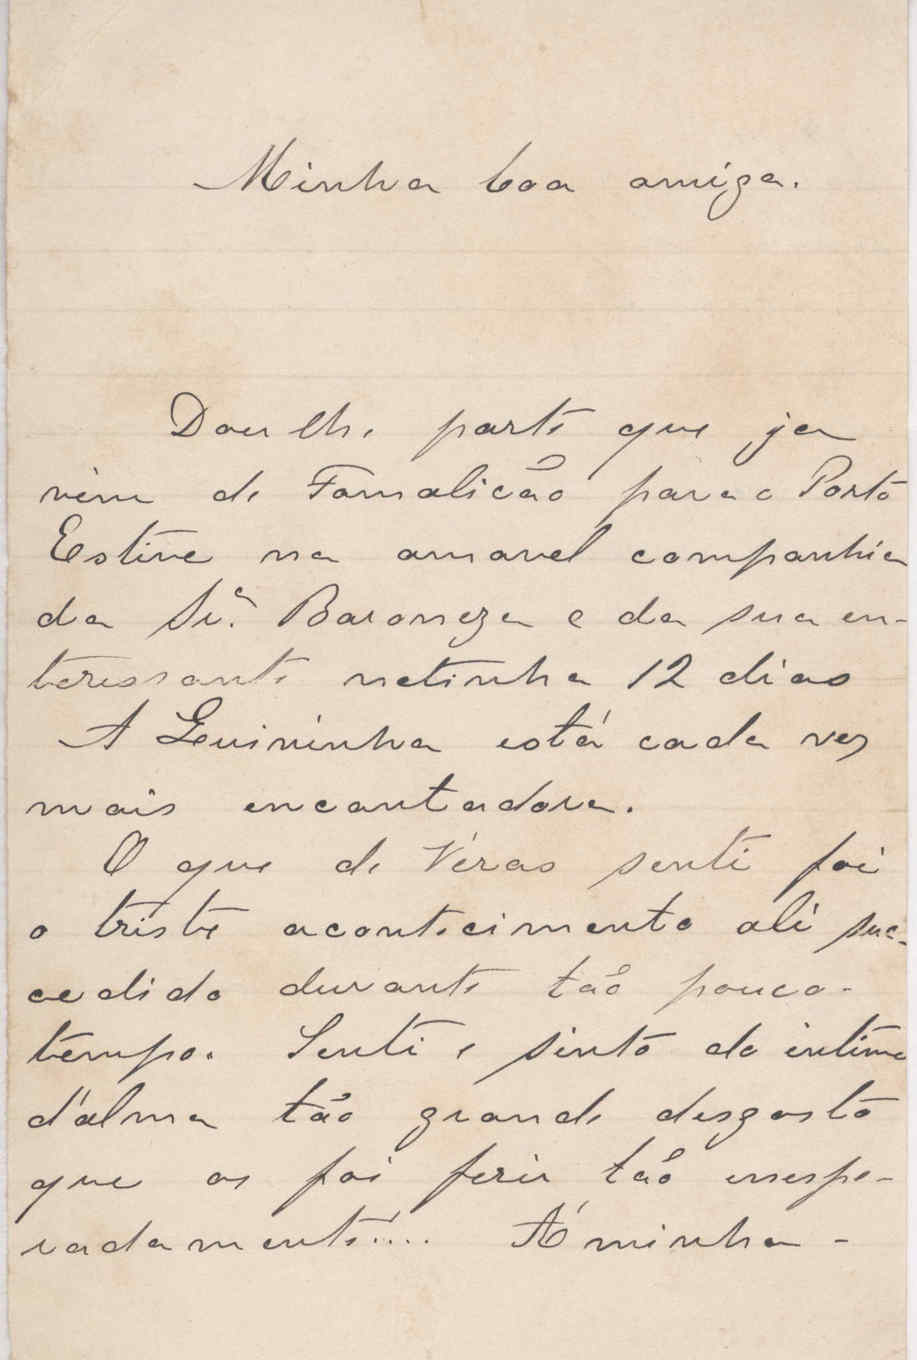 Minha boa amiga.
Dou lhe parte que ja
vim de Famalicão para o Porto
Estive na amavel companhia
da Sr.ª Baroneza e da sua en-
teressante netinha 12 dias
A Guininha está cada vez
mais encantadora.
O que de Véras senti foi
o triste acontecimento ali suc-
cedido durante tão pouco-
tempo. Senti e sinto do intimo
d'alma tão grande desgosto
que os foi ferir tão enespe-
radamente!... Á minha -